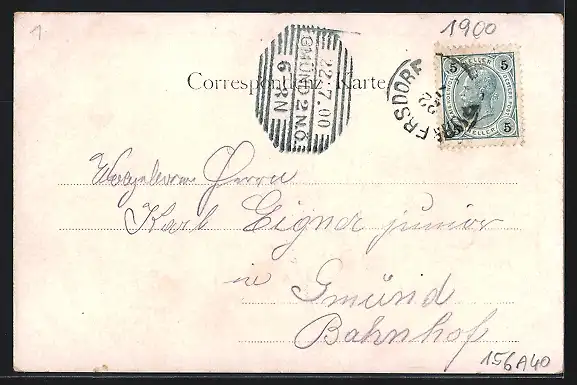 1
1900
Correspondenz-Karte
GMÜND 2 N.Ö.
22.7.00
6
5 5
HELLER
5
22
ERSDORF
Herrn
Karl Eigner junior
in
Gmünd
Bahnhof
156A40